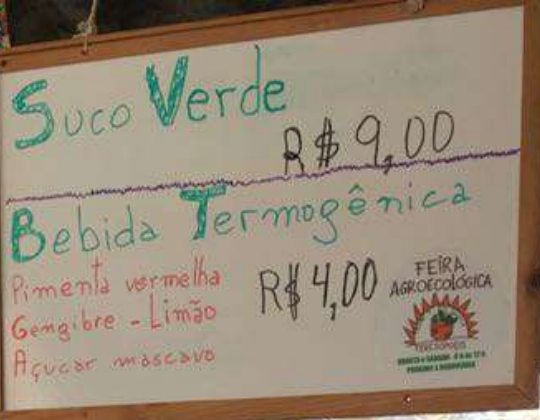 Suco Verde
R$ 9,00
Bebida Termogênica
Pimenta vermelha
Gengibre - Limão
Açucar mascavo
R$ 4,00
FEIRA
AGROECOLÓGICA
TERESÓPOLIS